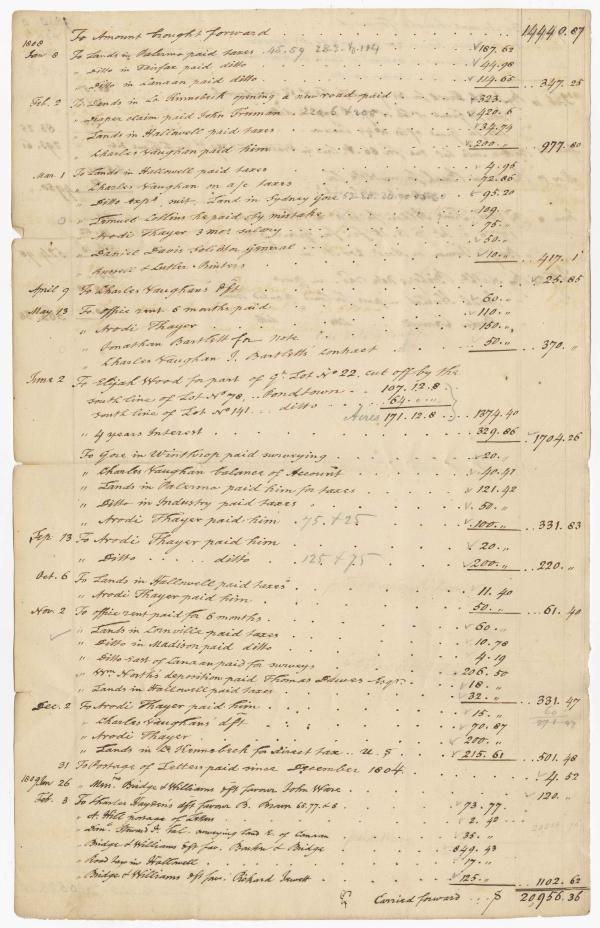 To Amount brought forward 14440.87
1808
Jan 8 To Lands in Palermo paid taxes 187.62
" Ditto in Fairfax paid ditto 44.98
" Ditto in Canaan paid ditto 114.65 347.25
Feb. 2 To Lands in Kennebeck opening a new road paid 323. "
" claim paid John Truman 420.6
" Lands in Hallowell paid taxes 34.74
" Charles Vaughan paid him 200. " 977.80
Mar. 1 To Lands in Hallowell paid taxes 4.95
" Charles Vaughan on a/c taxes 72.86
" Ditto exps. suit. Land in Sydney Gore 95.20
" Lemuel Collins he paid by mistake 109. "
" Arodi Thayer 3 mos. salary 75. "
" Daniel Davis Solicitor General 50. "
" Russell & Cutler Printers 10. " 417.1
April 9 To Charles Vaughan's dft 25.85
May 13 To office rent 6 months paid 60. "
" Arodi Thayer 110. "
" Jonathan Bartlett for note 150. "
" Charles Vaughan J. Bartlett's contract 50. " 370. "
June 2 To Elijah Wood for part of Lot No 22. cut off by the
south line of Lot No 78. Pondtown 107.12.8
south line of Lot No 141 ditto 64. " "
Acres 171.12.8 1374.40
" 4 years Interest 329.86 1704.26
To Gore in Winthrop paid surveying 20. "
" Charles Vaughan balance of Account 40.41
" Lands in Palermo paid him for taxes 121.42
" Ditto in Industry paid taxes 50. "
" Arodi Thayer paid him 75 + 25 100. " 331.83
Sep. 13 To Arodi Thayer paid him 20. "
" Ditto ditto 125 + 75 200. " 220. "
Oct. 6 To Lands in Hallowell paid taxes 11.40
" Arodi Thayer paid him 50. " 61.40
Nov. 2 To office rent paid for 6 months 60. "
" Lands in Cornville paid taxes 10.78
" Ditto in Madison paid ditto 4.19
" Ditto East of Canaan paid for surveys 206.50
" Wm North's deposition paid Thomas Dawes Esqr. 18. "
" Lands in Hallowell paid taxes 32. " 331.47
Dec. 2 To Arodi Thayer paid him 15. "
" Charles Vaughans' dft 70.87
" Arodi Thayer 200. "
" Lands in Kennebeck for direct tax U. S 215.61 501.48
31 To Postage of Letters paid since December 1804 4.52
1809 Jan 26 " Messrs Bridge & Williams dft favour John Ware 120. "
Feb. 3 To Charles Hayden's dft favour B. Brown 73.77
" A. Hill postage of Letters 2.42
" surveying land &c of Canaan 35. "
" Bridge & Williams dft fav. & Bridge 849.43
" Road tax in Hallowell 17. "
" Bridge & Williams dft fav. Richard Jewett 125. " 1102.62
Carried forward $ 20,956.36